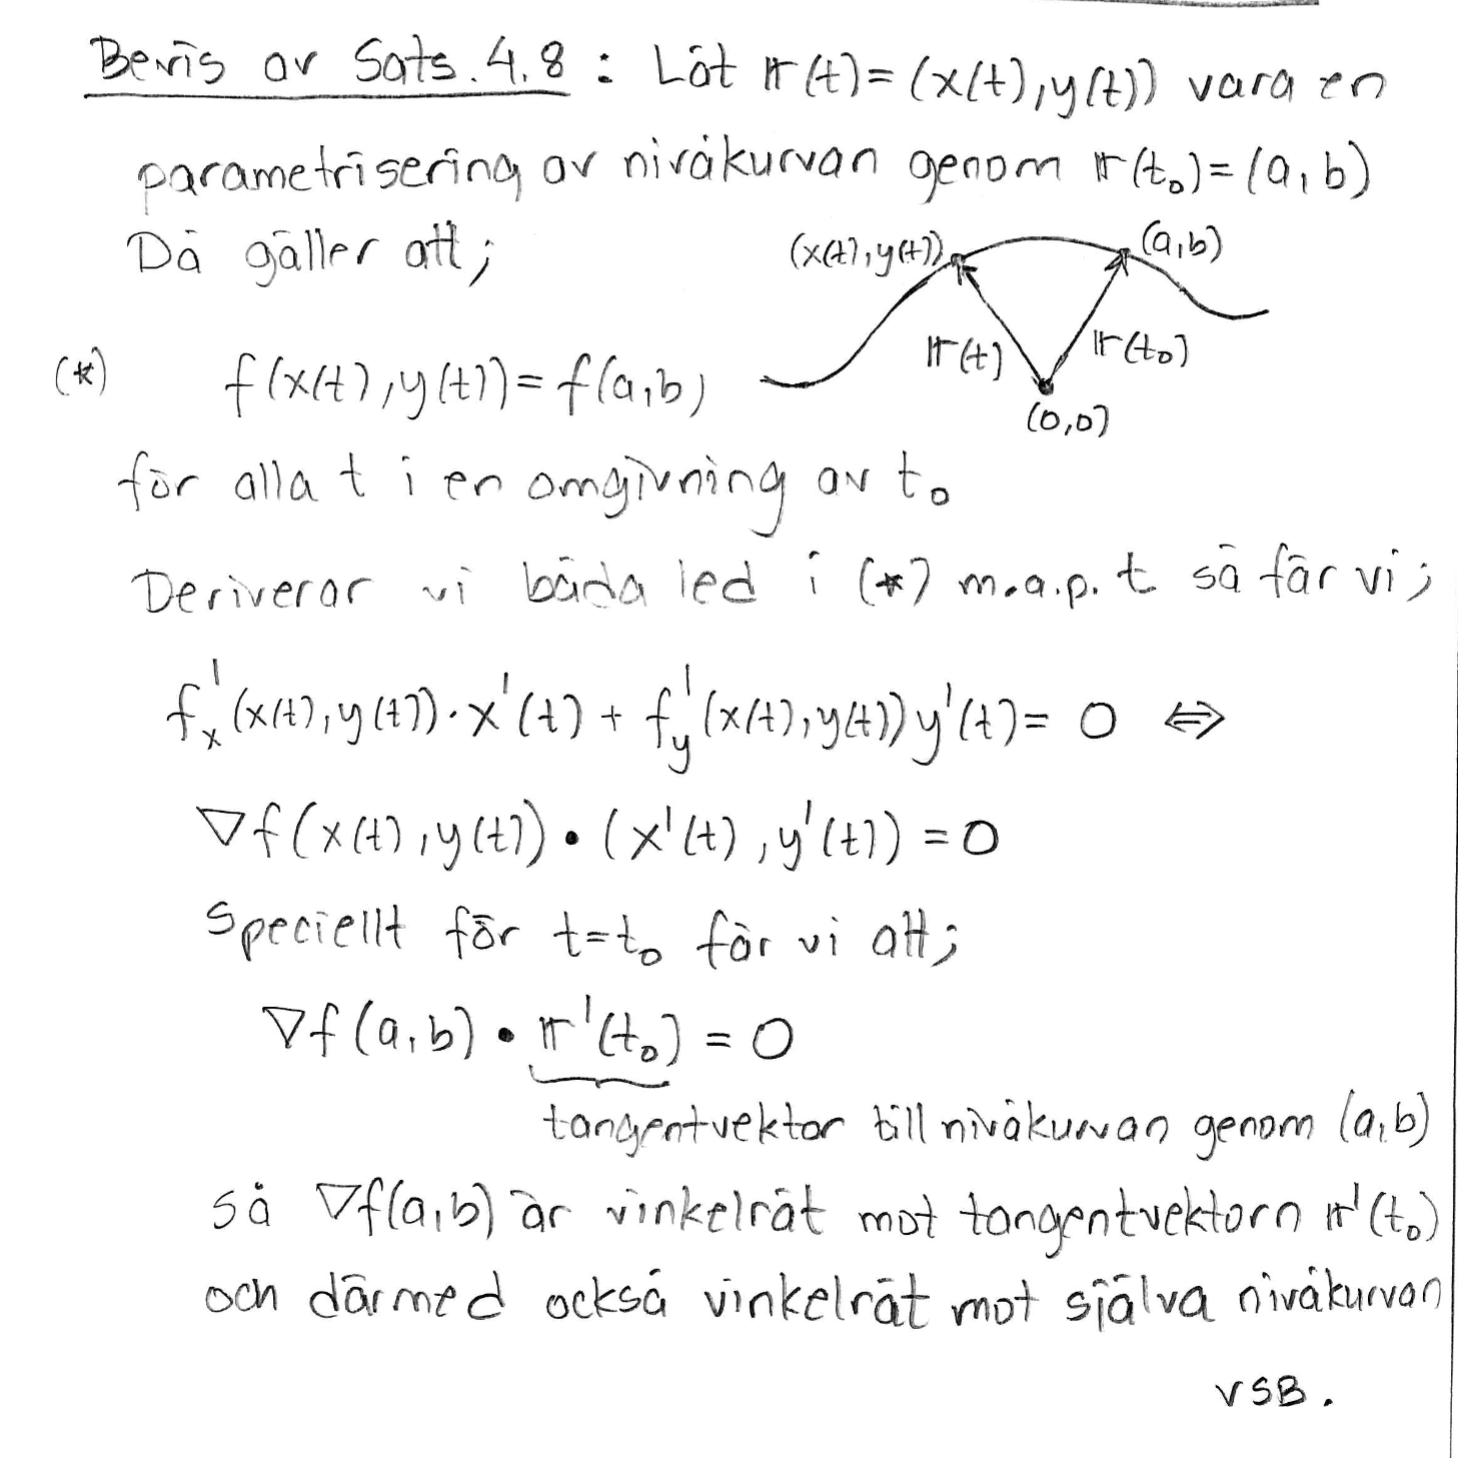 Bevis av Sats. 4.8 : Låt 𝕣(t)=(x(t),y(t)) vara en
parametrisering av nivåkurvan genom 𝕣(t₀)=(a,b)
Då gäller att;
(x(t),y(t))
(a,b)
𝕣(t)
𝕣(t₀)
(0,0)
(*) f(x(t),y(t))=f(a,b)
för alla t i en omgivning av t₀
Deriverar vi båda led i (*) m.a.p. t så får vi;
fₓ'(x(t),y(t))·x'(t) + f_y'(x(t),y(t))y'(t)= 0 ⇔
∇f(x(t),y(t))•(x'(t),y'(t))=0
Speciellt för t=t₀ får vi att;
∇f(a,b)•𝕣'(t₀)=0
tangentvektor till nivåkurvan genom (a,b)
så ∇f(a,b) är vinkelrät mot tangentvektorn 𝕣'(t₀)
och därmed också vinkelrät mot själva nivåkurvan
VSB.